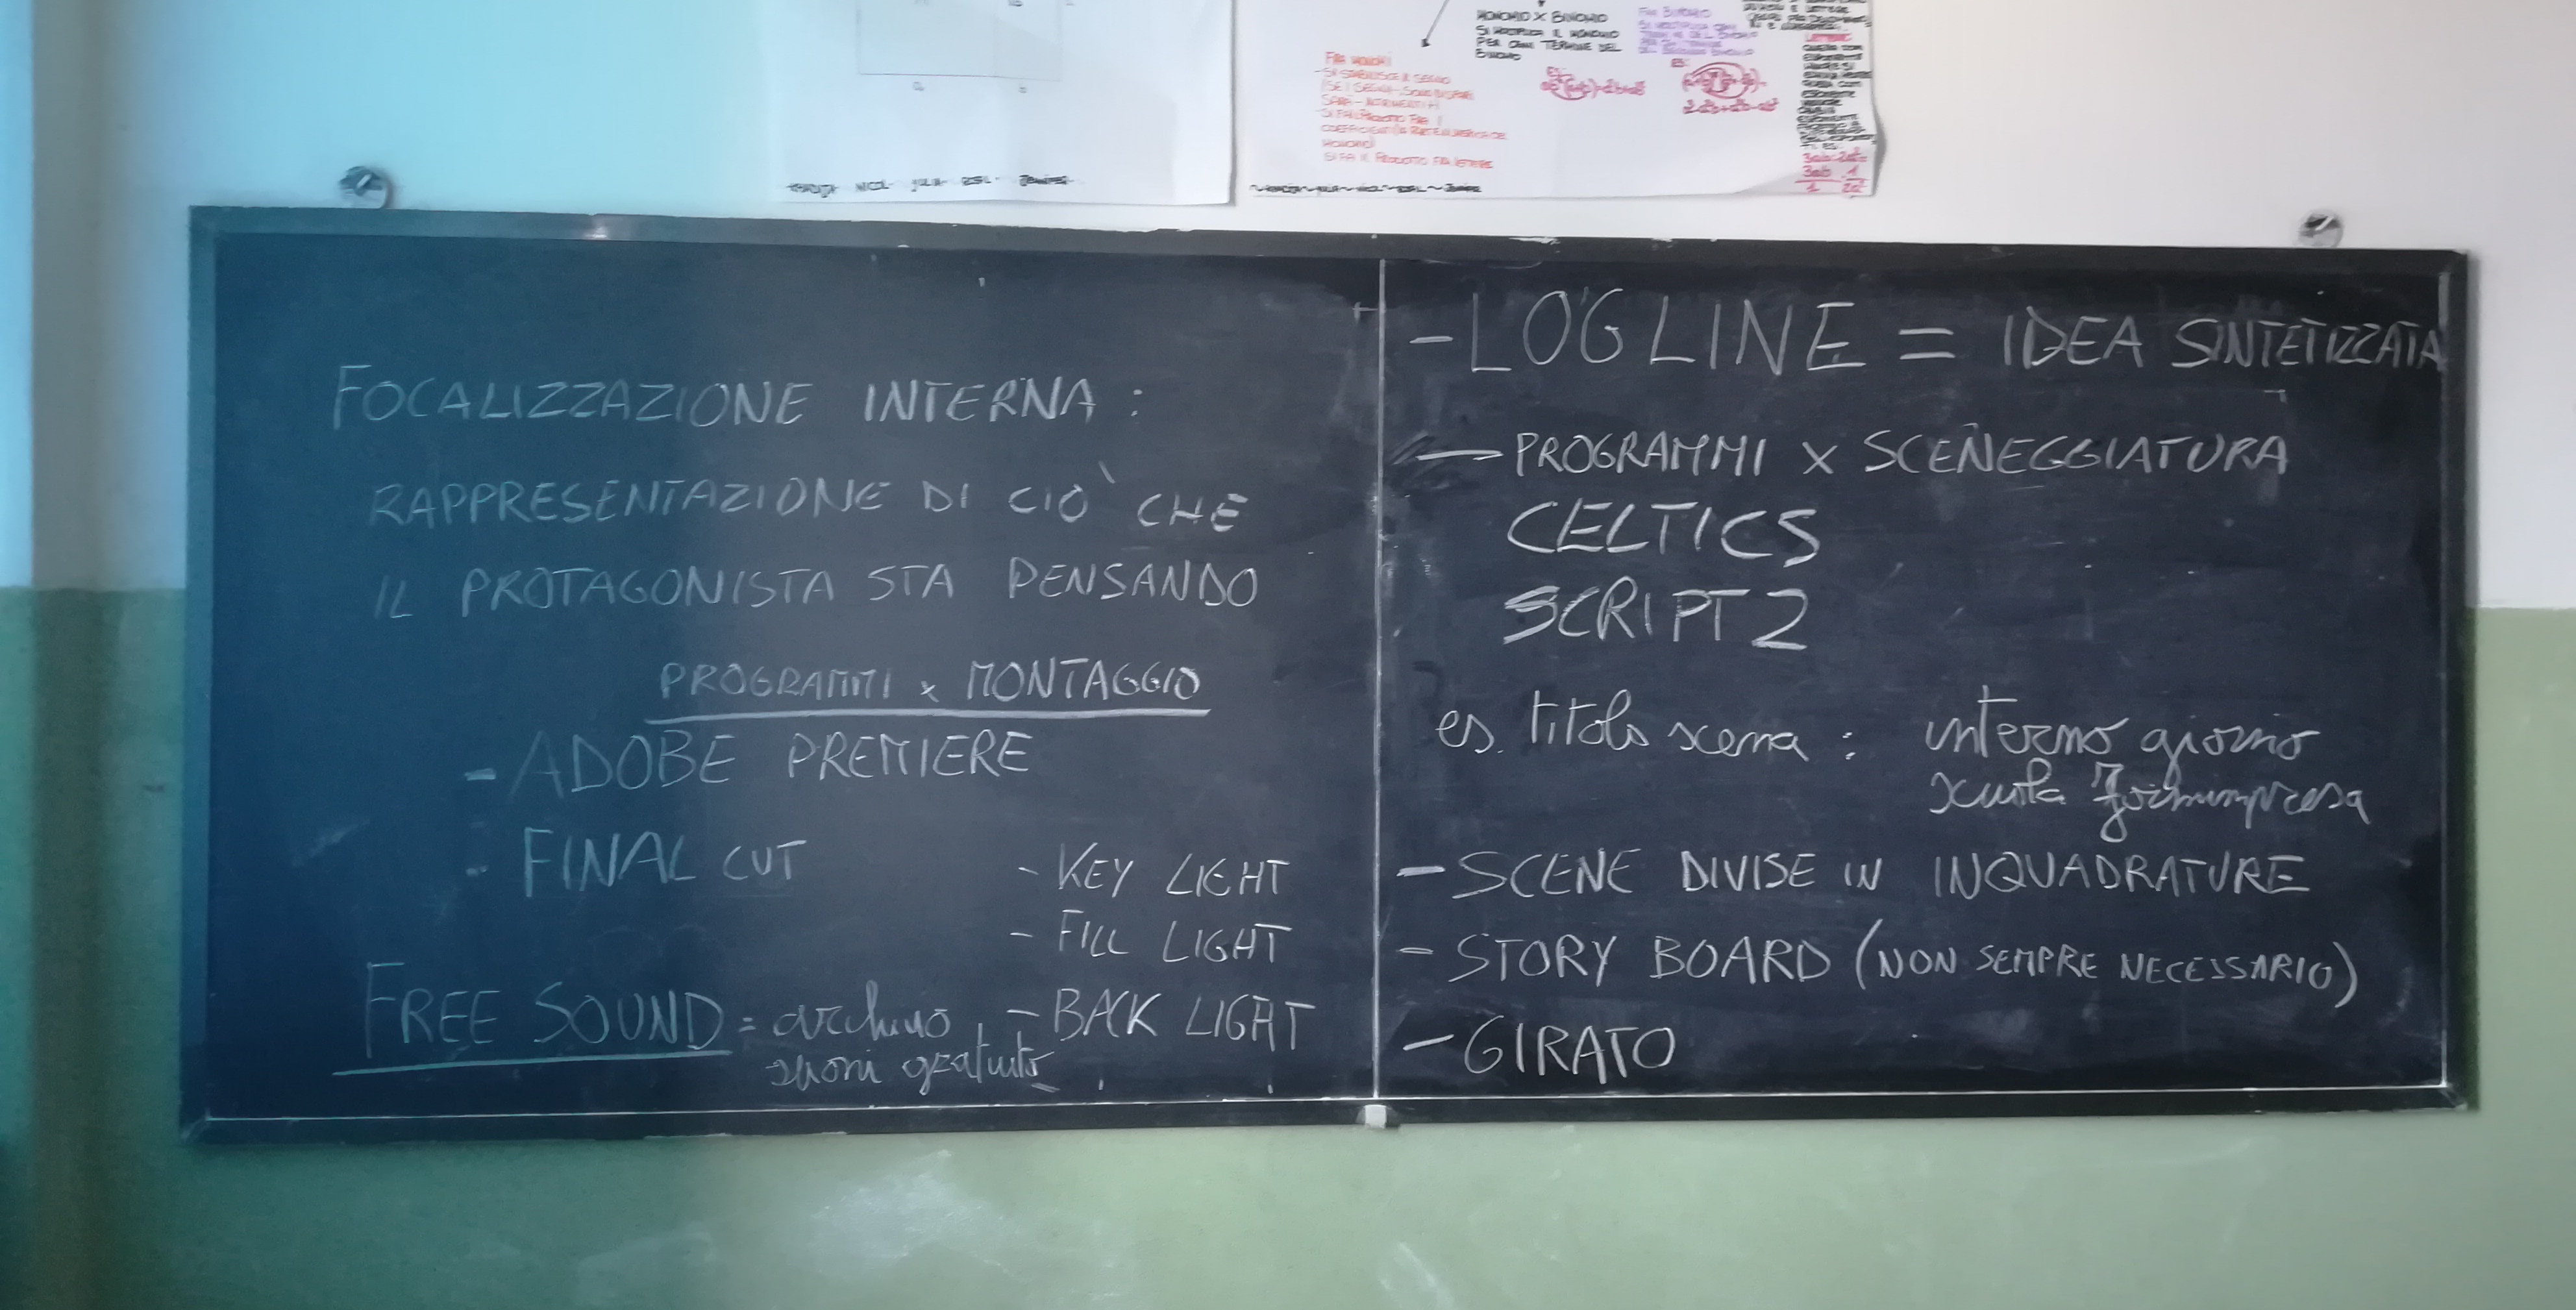 MONOMIO X BINOMIO
SI MOLTIPLICA IL MONOMIO
PER OGNI TERMINE DEL
BINOMIO
FRA MONOMI
- SI STABILISCE IL SEGNO
- SI FA IL PRODOTTO FRA I
MONOMI)
SI FA IL PRODOTTO FRA LETTERE
FOCALIZZAZIONE INTERNA :
RAPPRESENTAZIONE DI CIÒ CHE
IL PROTAGONISTA STA PENSANDO
PROGRAMMI x MONTAGGIO
- ADOBE PREMIERE
- FINAL CUT
- KEY LIGHT
- FILL LIGHT
- BACK LIGHT
FREE SOUND = archivio
suoni gratuito
- LOGLINE = IDEA SINTETIZZATA
- PROGRAMMI X SCENEGGIATURA
CELTICS
SCRIPT 2
es. titolo scena : interno giorno
scuola Formimpresa
- SCENE DIVISE IN INQUADRATURE
- STORY BOARD (NON SEMPRE NECESSARIO)
- GIRATO